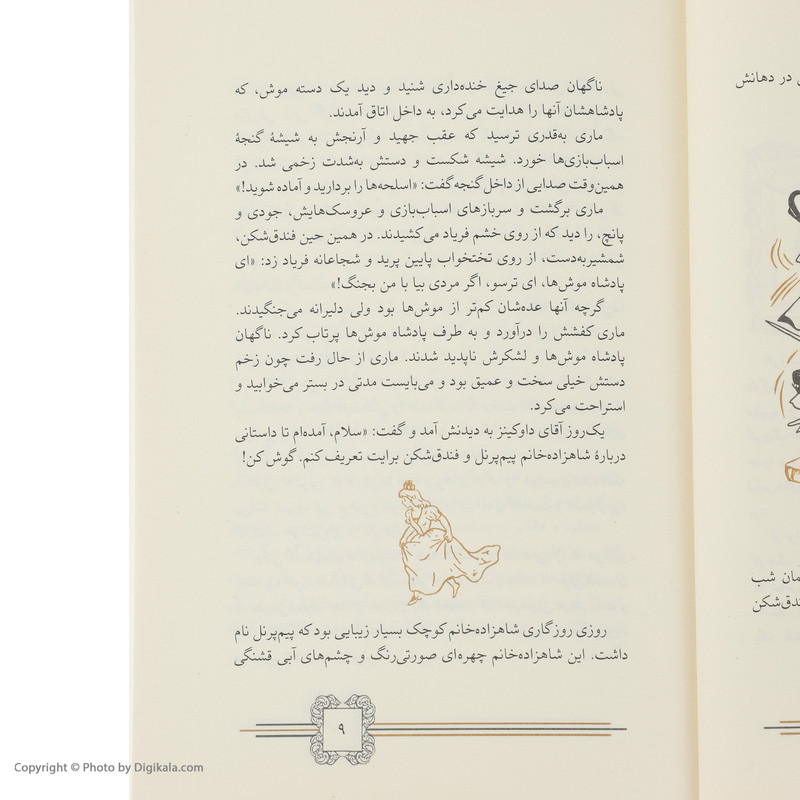 ناگهان صدای جیغ خنده‌داری شنید و دید یک دسته موش، که
پادشاهشان آنها را هدایت می‌کرد، به داخل اتاق آمدند.
ماری به‌قدری ترسید که عقب جهید و آرنجش به شیشهٔ گنجهٔ
اسباب‌بازی‌ها خورد. شیشه شکست و دستش به‌شدت زخمی شد. در
همین‌وقت صدایی از داخل گنجه گفت: «اسلحه‌ها را بردارید و آماده شوید!»
ماری برگشت و سربازهای اسباب‌بازی و عروسک‌هایش، جودی و
پانچ، را دید که از روی خشم فریاد می‌کشیدند. در همین حین فندق‌شکن،
شمشیربه‌دست، از روی تختخواب پایین پرید و شجاعانه فریاد زد: «ای
پادشاه موش‌ها، ای ترسو، اگر مردی بیا با من بجنگ!»
گرچه آنها عده‌شان کم‌تر از موش‌ها بود ولی دلیرانه می‌جنگیدند.
ماری کفشش را درآورد و به طرف پادشاه موش‌ها پرتاب کرد. ناگهان
پادشاه موش‌ها و لشکرش ناپدید شدند. ماری از حال رفت چون زخم
دستش خیلی سخت و عمیق بود و می‌بایست مدتی در بستر می‌خوابید و
استراحت می‌کرد.
یک‌روز آقای داوکینز به دیدنش آمد و گفت: «سلام، آمده‌ام تا داستانی
دربارهٔ شاهزاده‌خانم پیم‌پرنل و فندق‌شکن برایت تعریف کنم. گوش کن!
روزی روزگاری شاهزاده‌خانم کوچک بسیار زیبایی بود که پیم‌پرنل نام
داشت. این شاهزاده‌خانم چهره‌ای صورتی‌رنگ و چشم‌های آبی قشنگی
۹
در دهانش
شب
Copyright © Photo by Digikala.com